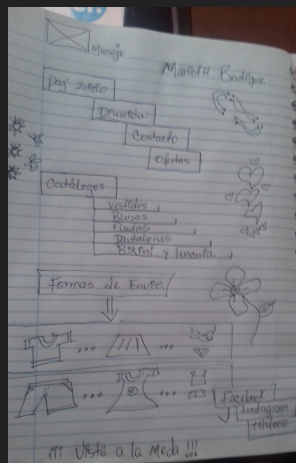 Mensaje
Boutique
Pag. inicio
Dirección
Contacto
Ofertas
Catálogos
Vestidos
Blusas
Faldas
Pantalones
Bikini y Lencería
Formas de Envio
Facebook
Instagram
Telefono
¡¡¡ Viste a la Moda !!!